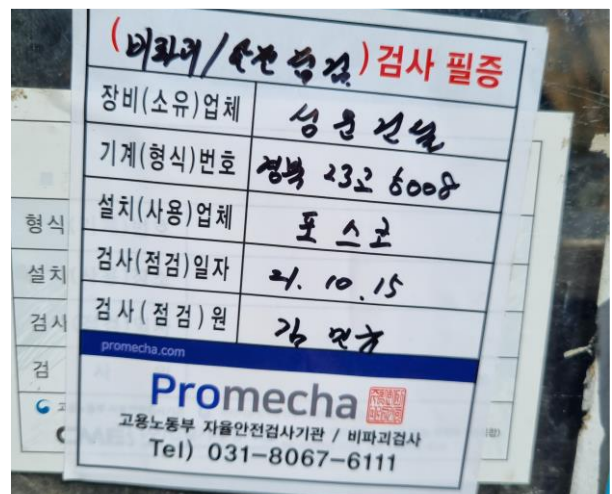 (비파괴/안전점검)검사 필증
장비(소유)업체 성운건설
기계(형식)번호 경북 23고 5008
설치(사용)업체 포스코
검사(점검)일자 21. 10. 15
검사(점검)원 김
promecha.com
Promecha
고용노동부 자율안전검사기관 / 비파괴검사
Tel) 031-8067-6111
형식
설치
검사
검